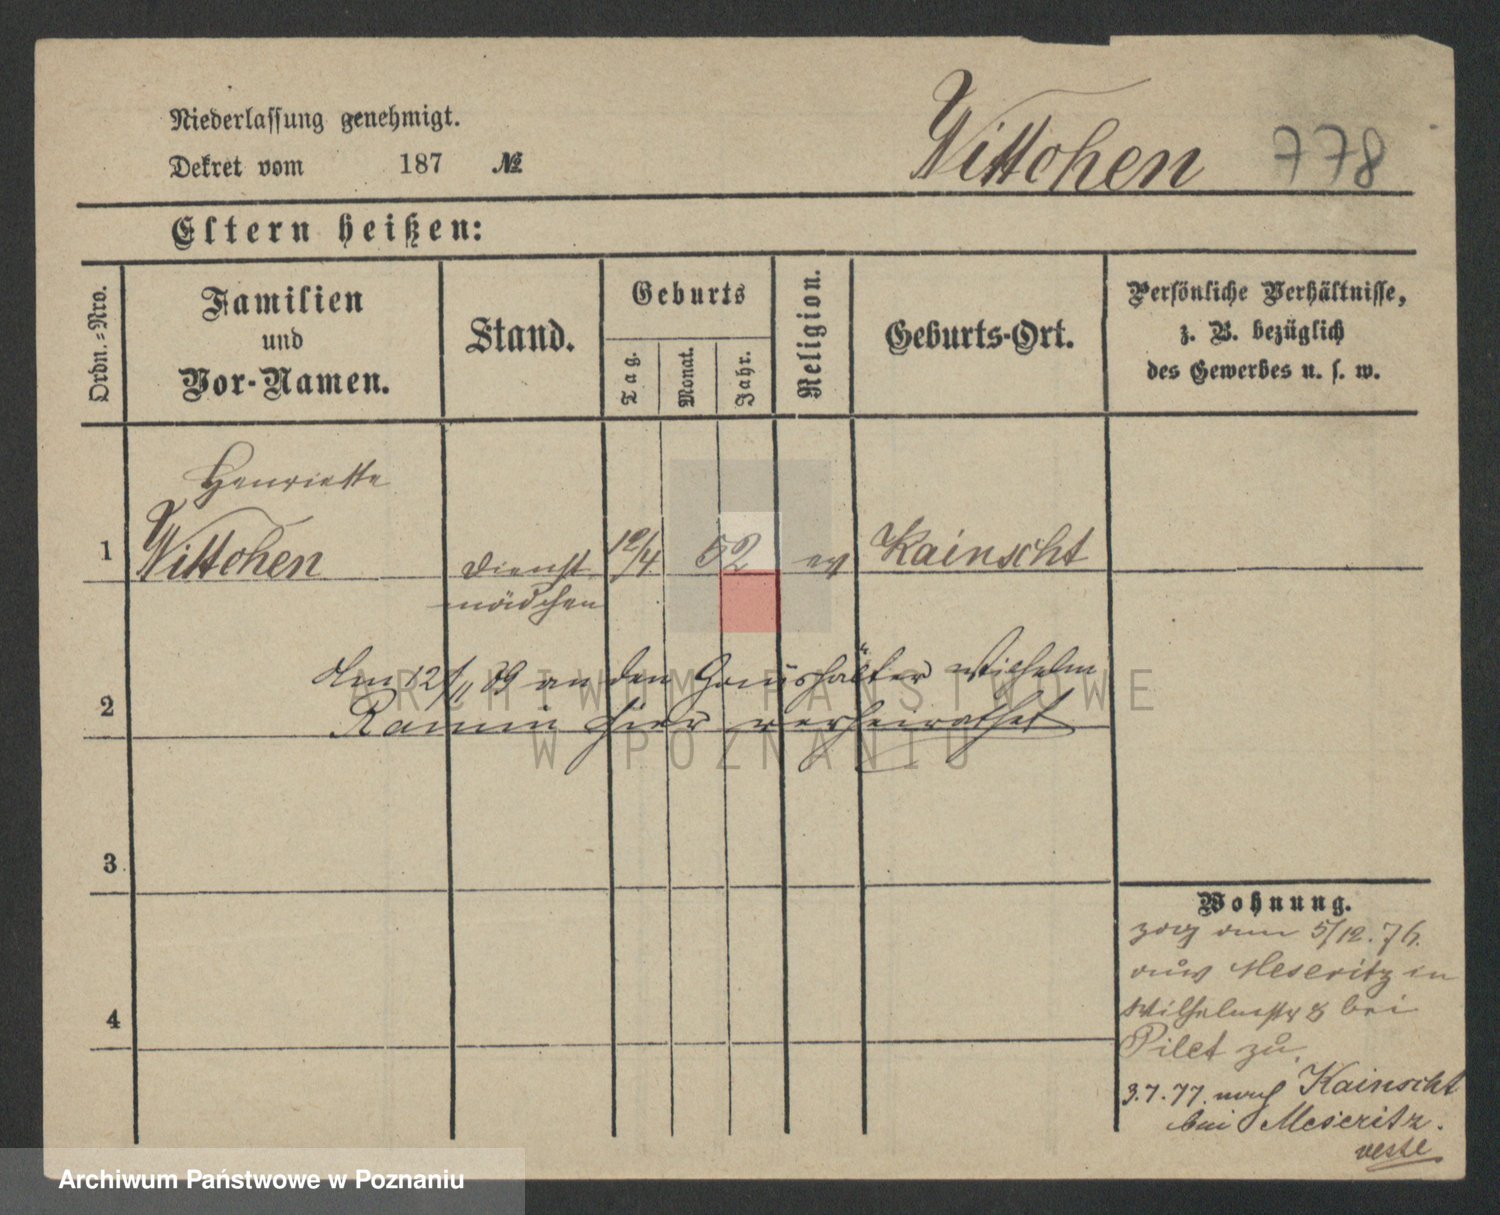 Niederlassung genehmigt.
Dekret vom 187 №
Wittchen 778
Eltern heißen:
Ordn.=Nro.
Familien
und
Vor-Namen.
Stand.
Geburts
Tag.
Monat.
Jahr.
Religion.
Geburts-Ort.
Persönliche Verhältnisse,
z. B. bezüglich
des Gewerbes u. s. w.
Henriette
1 Wittchen Dienst 12/4 52 ev Kainscht
mädchen
den 12/11 89 an den Haushälter Wilhelm
2 Ramm hier verheirathet
ARCHIWUM PAŃSTWOWE
W POZNANIU
3
4
Wohnung.
zog am 5/12. 76.
aus Meseritz in
Wilhelmstr 8 bei
Pilet zu.
3.7.77. nach Kainscht
bei Meseritz.
Archiwum Państwowe w Poznaniu